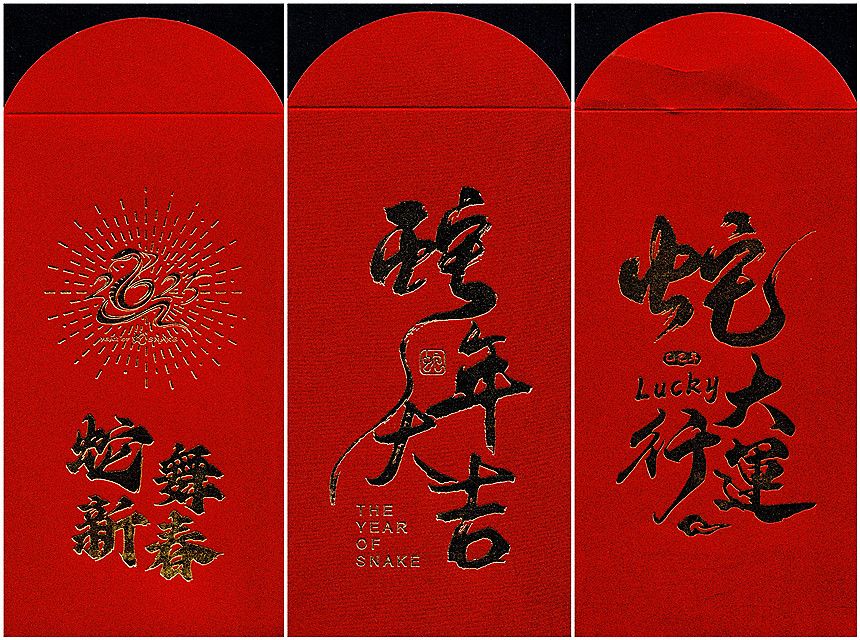 2025
YEAR OF SNAKE
蛇舞
新春
蛇
年
大
吉
蛇
THE
YEAR
OF
SNAKE
蛇
Lucky
大
行
運